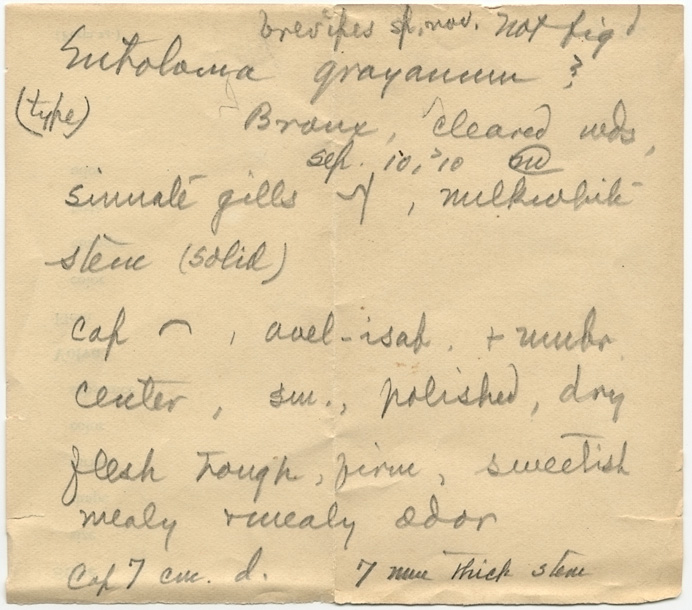 brevipes sp. nov. Not fig'd
Entoloma grayanum ?
(type)
Bronx, cleared wds,
Sep. 10, '10
sinuate gills , milkwhite
stem (solid)
cap , avel-isab. + umbr.
center, sm., polished, dry
flesh tough, firm, sweetish
mealy + mealy odor
Cap 7 cm. d. 7 mm thick stem